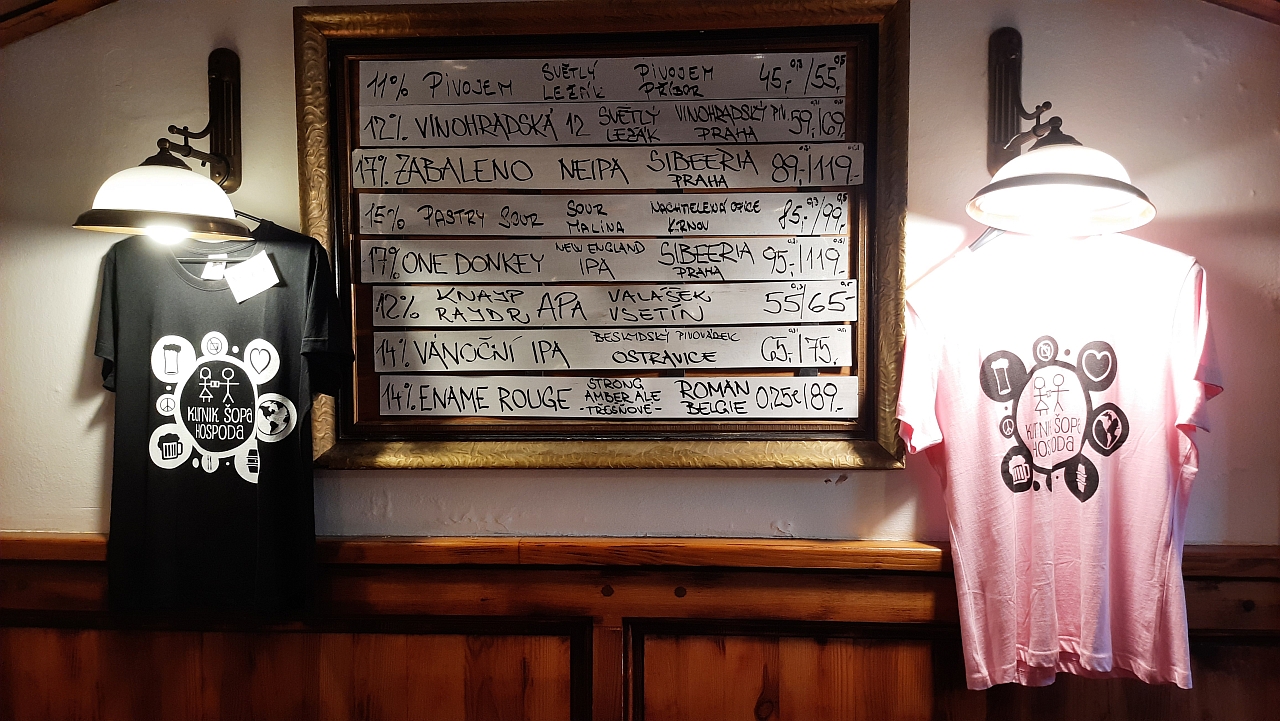 11% PIVOJEM SVĚTLÝ LEŽÁK PIVOJEM PŘÍBOR 45,-0,3/55,-0,5
12% VINOHRADSKÁ 12 SVĚTLÝ LEŽÁK VINOHRADSKÝ PIV. PRAHA 59,/69,-
17% ZABALENO NEIPA SIBEERIA PRAHA 89,-/119.-
15% PASTRY SOUR SOUR MALINA KRNOV 85,-0,3/99,-0,5
17% ONE DONKEY NEW ENGLAND IPA SIBEERIA PRAHA 95,-/119.-
12% KNAJP RAJDR APA VALÁŠEK VSETÍN 55/65,-
14% VÁNOČNÍ IPA BESKYDSKÝ PIVOVÁREK OSTRAVICE 65,-/75,-
14% ENAME ROUGE STRONG AMBER ALE -TŘEŠŇOVÉ- ROMAN BELGIE 0,25l/89.-
KURNIK ŠOPA
HOSPODA
KURNIK ŠOPA
HOSPODA